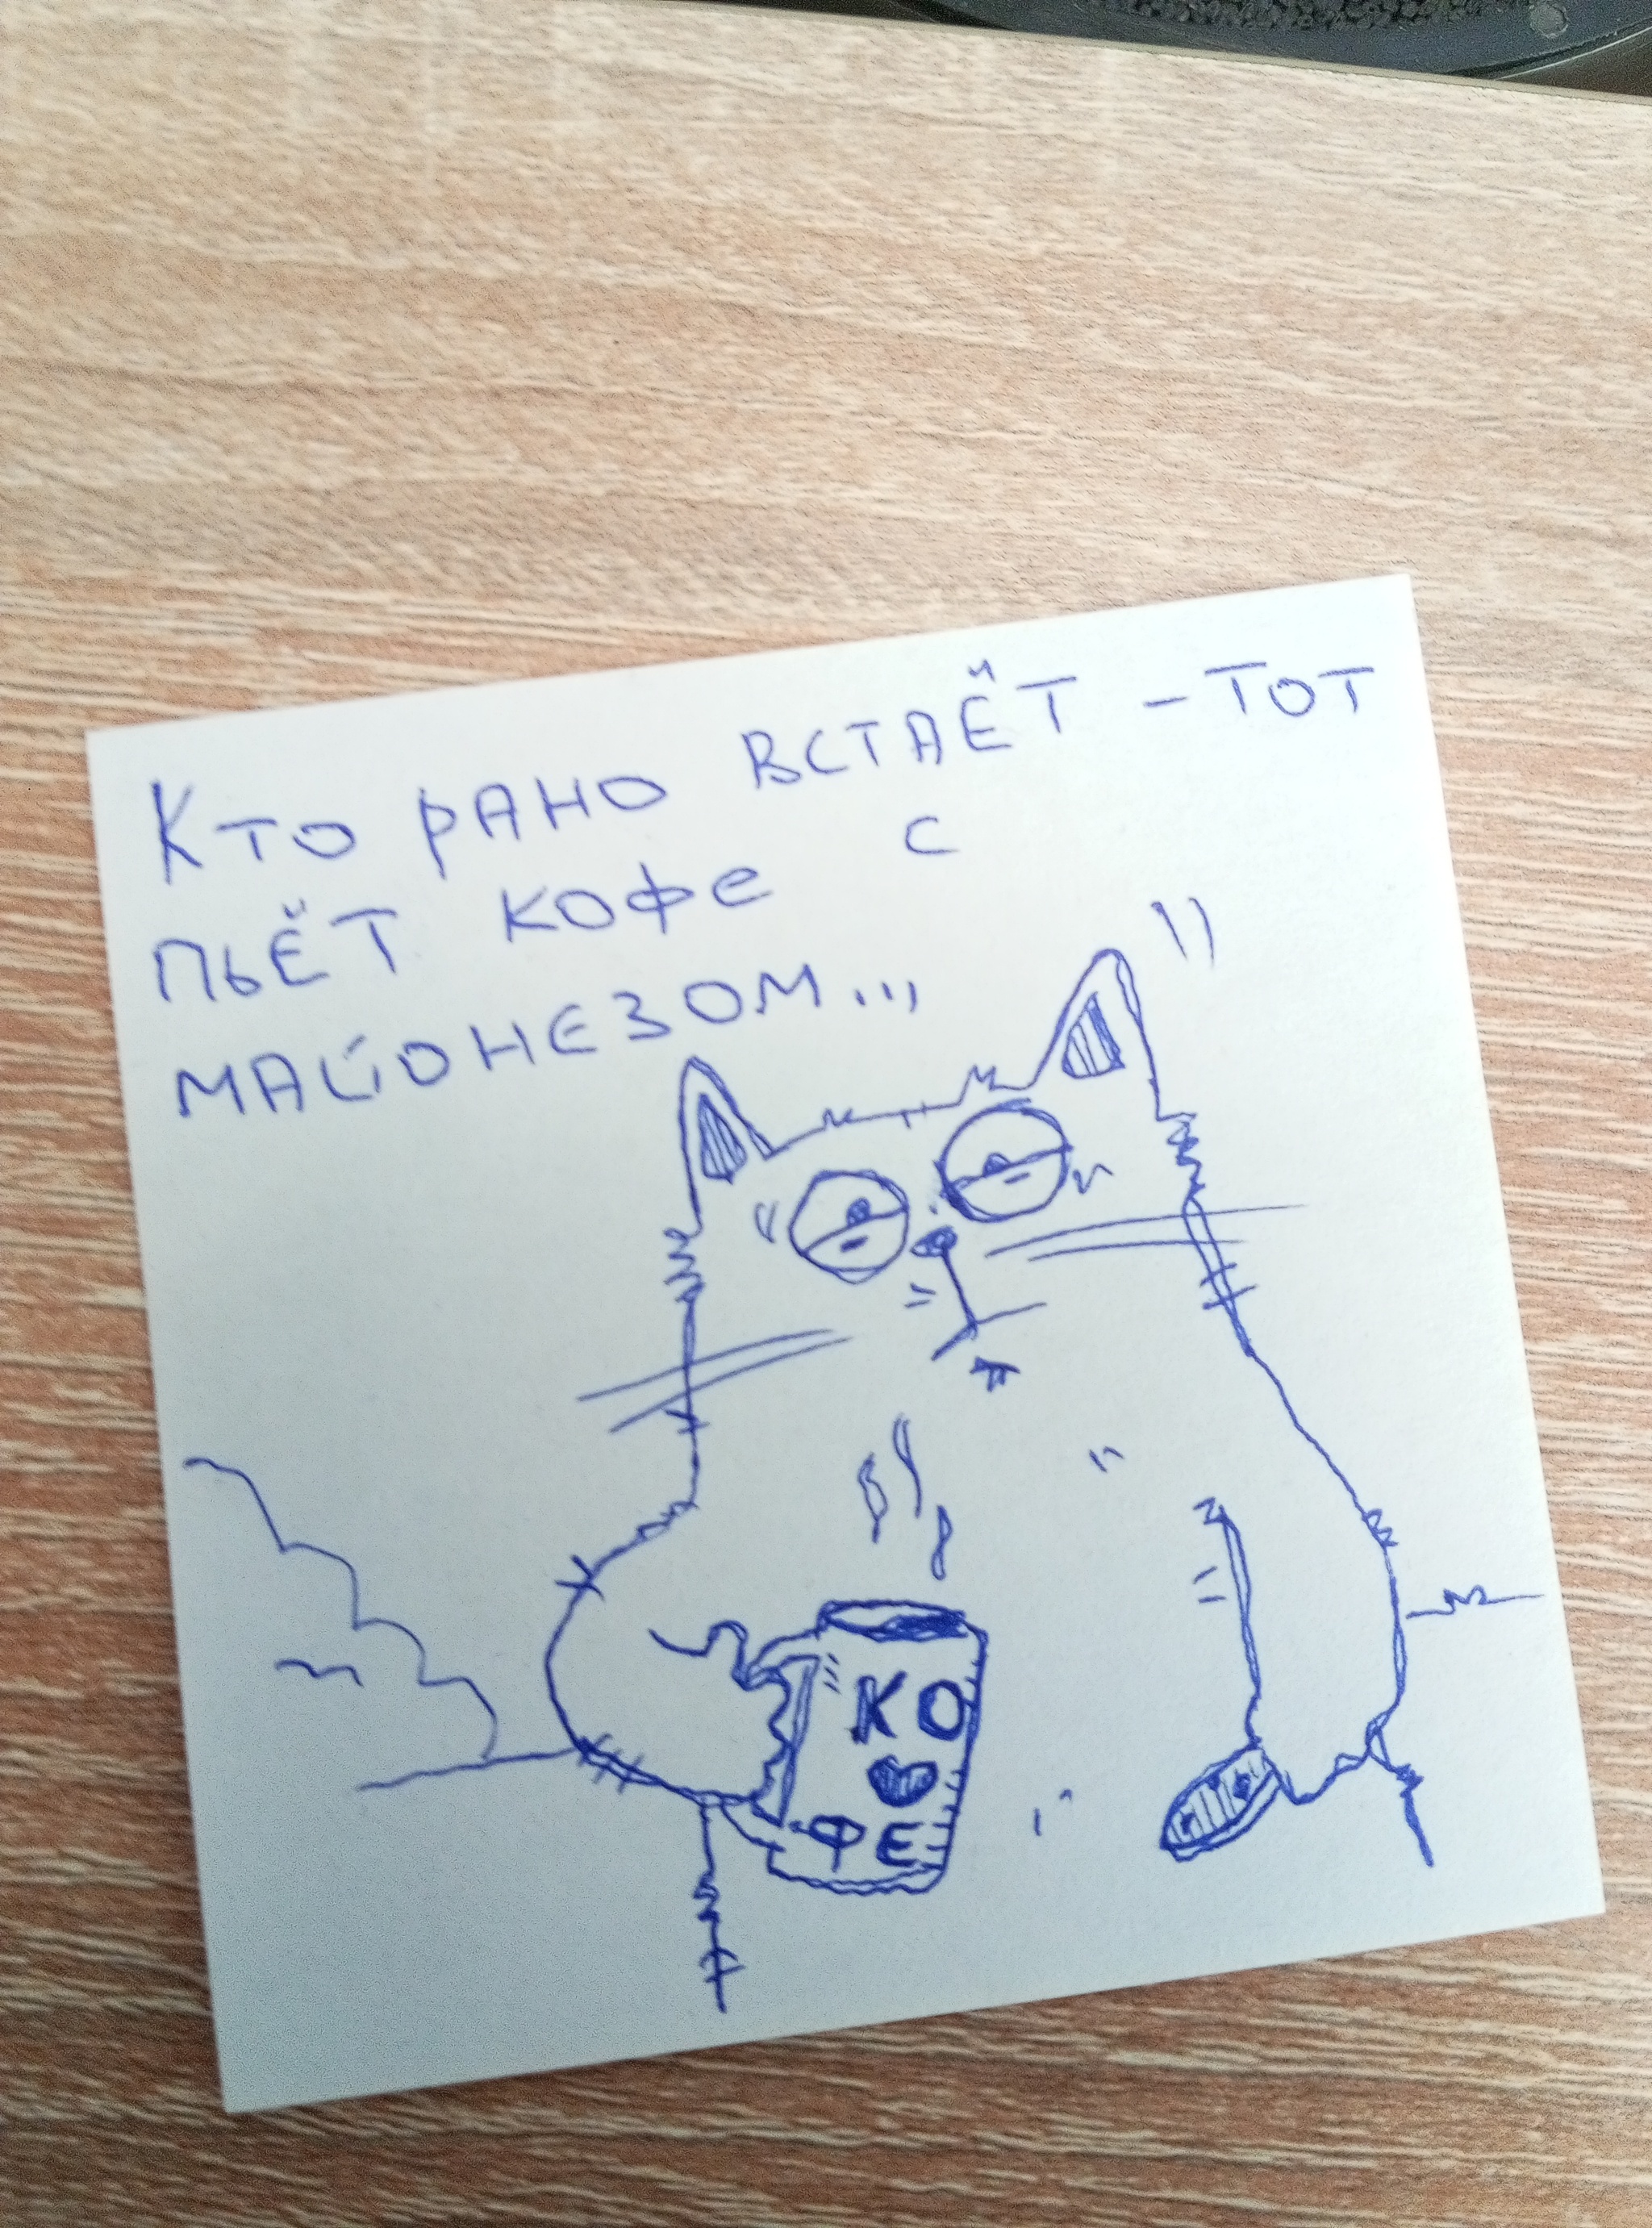 Кто рано встаёт - тот
пьёт кофе с
майонезом...
КО
ФЕ